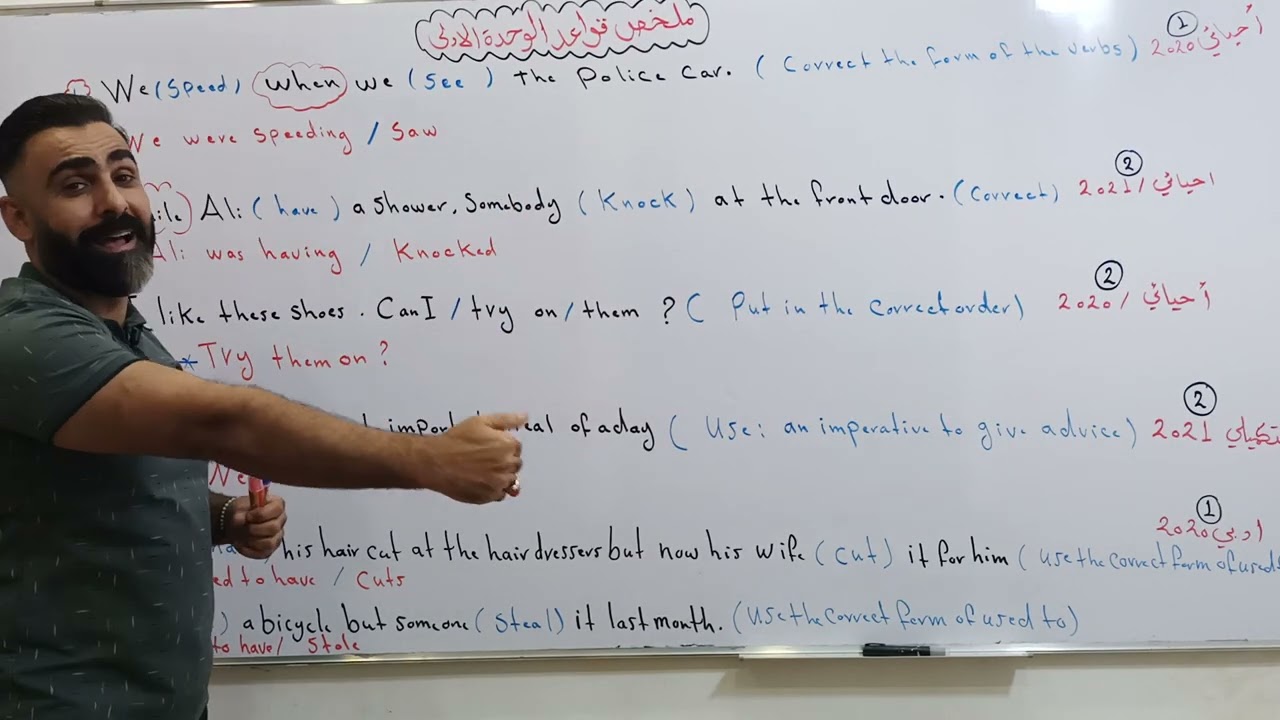 ملخص قواعد الوحدة الاولى
We (Speed) when we (See) the Police Car. (Correct the form of the verbs) أحيائي 2020 1
We were speeding / Saw
Ali (have) a shower. Somebody (Knock) at the front door. (Correct) احيائي / 2021 2
Ali was having / Knocked
like these shoes. Can I / try on / them ? (Put in the Correct order) أحيائي / 2020 2
* Try them on ?
of a day (Use: an imperative to give advice) 2021 2
his hair cut at the hairdressers but now his wife (cut) it for him (use the correct form of used ادبي 2020 1
to have / Cuts
) a bicycle but someone (Steal) it last month. (Use the Correct form of used to)
to have / Stole